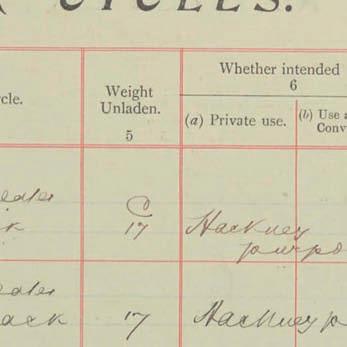 CYCLES.
cle.
Weight
Unladen.
5
Whether intended
6
(a) Private use.
(b) Use a
Conv
C
17
Hackney
purpo
ack
17
Hackney p